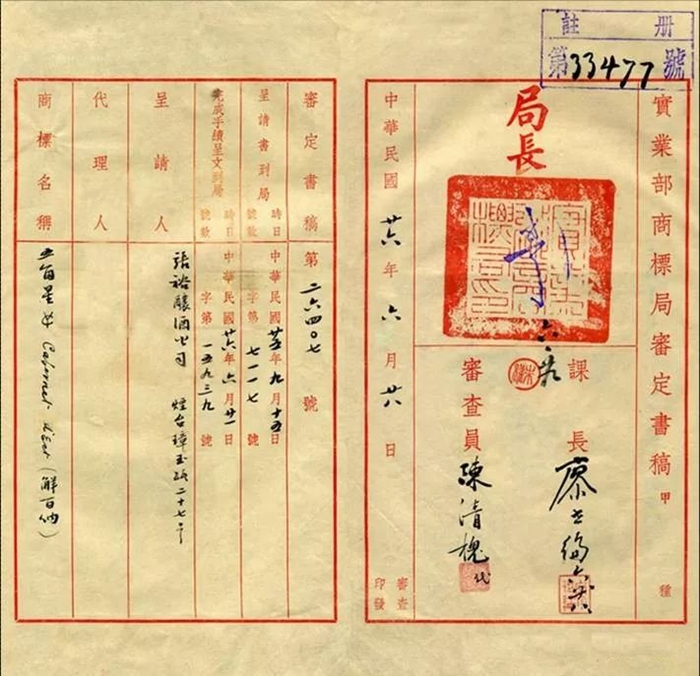 註册
第33477號
實業部商標局審定書稿 甲種
局長
課長
審查員 陳清槐 代
中華民國 廿六年 六月 廿八日
審查
印發
審定書稿 第二六四〇七號
呈請書到局
時日 中華民國廿五年九月十五日
號數 字第七一一七號
完成手續呈文到局
時日 中華民國廿六年六月廿一日
號數 字第一五九三九號
呈請人 張裕釀酒公司 煙台璋玉路二十七
代理人
商標名稱 五角星 Cabernet (解百納)